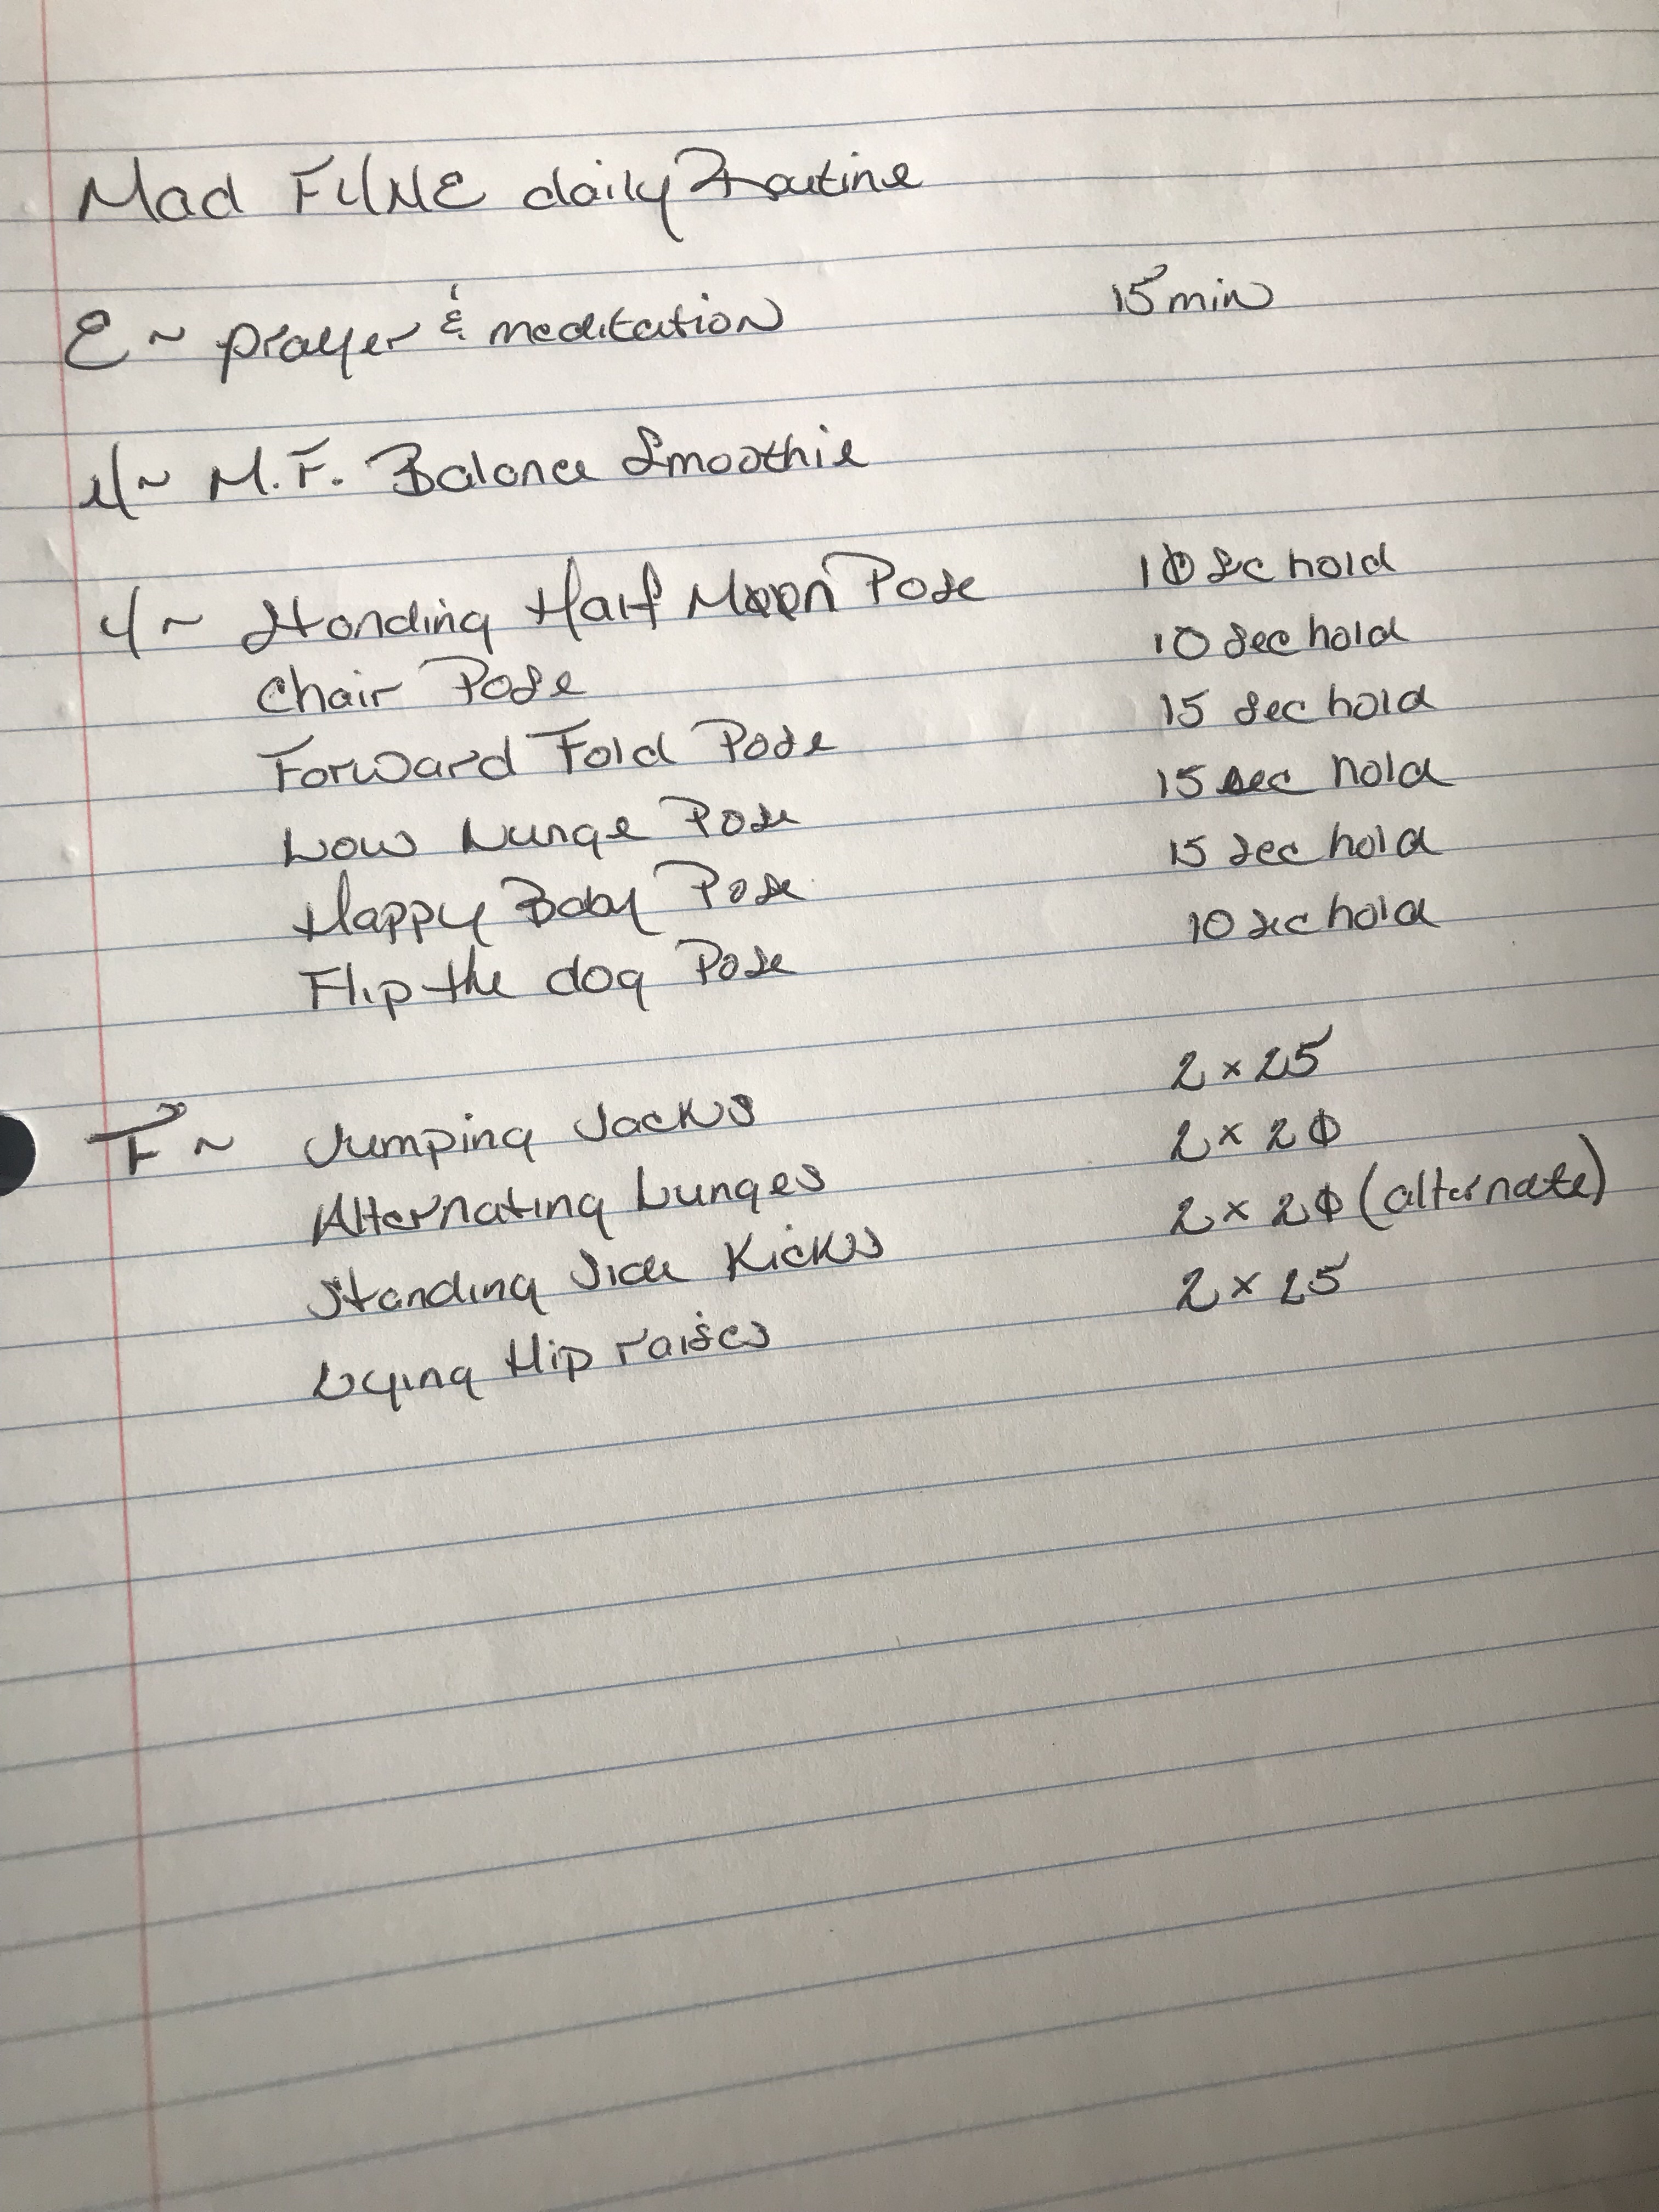 Mad FYNE daily Routine
E ~ prayer & meditation 15 min
N ~ M.F. Balance Smoothie
Y ~ Standing Half Moon Pose 10 Sec hold
Chair Pose 10 Sec hold
Forward Fold Pose 15 Sec hold
Low Lunge Pose 15 sec hold
Happy Baby Pose 15 sec hold
Flip the dog Pose 10 sec hold
F ~ Jumping Jacks 2 x 25
Alternating Lunges 2 x 20
Standing Side Kicks 2 x 20 (alternate)
Lying Hip raises 2 x 25